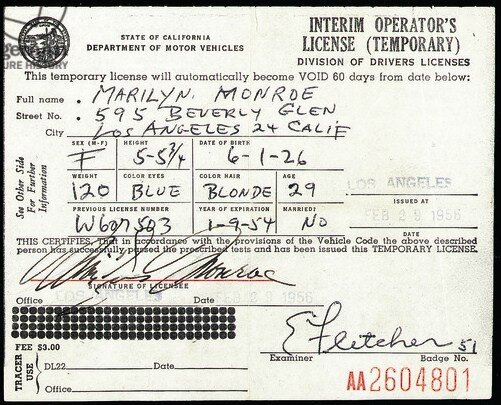 STATE OF CALIFORNIA
DEPARTMENT OF MOTOR VEHICLES
INTERIM OPERATOR'S
LICENSE (TEMPORARY)
DIVISION OF DRIVERS LICENSES
This temporary license will automatically become VOID 60 days from date below:
Full name . MARILYN MONROE
Street No. . 595 BEVERLY GLEN
City LOS ANGELES 24 CALIF
See Other Side For Further Information
SEX (M-F) HEIGHT DATE OF BIRTH
F 5-5 3/4 6-1-26
WEIGHT COLOR EYES COLOR HAIR AGE
120 BLUE BLONDE 29
LOS ANGELES
ISSUED AT
PREVIOUS LICENSE NUMBER YEAR OF EXPIRATION MARRIED?
W607503 1-9-54 NO
FEB 29 1956
DATE
THIS CERTIFIES, That in accordance with the provisions of the Vehicle Code the above described
person has successfully passed the prescribed tests and has been issued this TEMPORARY LICENSE.
Monroe
SIGNATURE OF LICENSEE
Office LOS ANGELES Date FEB 29 1956
E Fletcher 51
Examiner Badge No.
FEE $3.00
TRACER USE
DL22 Date
Office
AA2604801